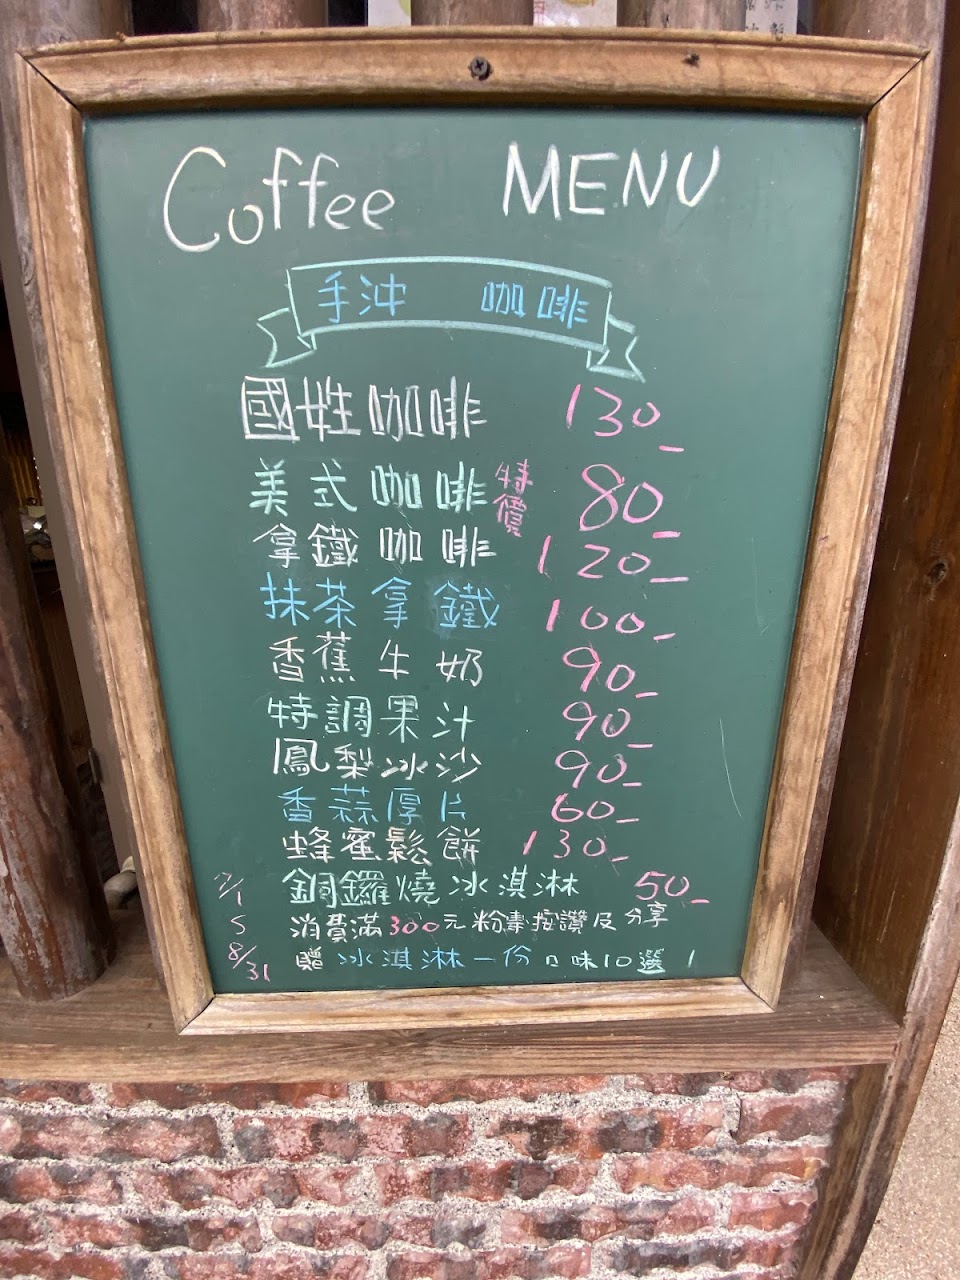 Coffee MENU
手沖 咖啡
國姓咖啡 130
美式咖啡 特價 80
拿鐵咖啡 120
抹茶拿鐵 100
香蕉牛奶 90
特調果汁 90
鳳梨冰沙 90
香蒜厚片 60
蜂蜜鬆餅 130
銅鑼燒冰淇淋 50
消費滿300元粉專按讚及分享
贈冰淇淋一份口味10選1
7/1
8/31